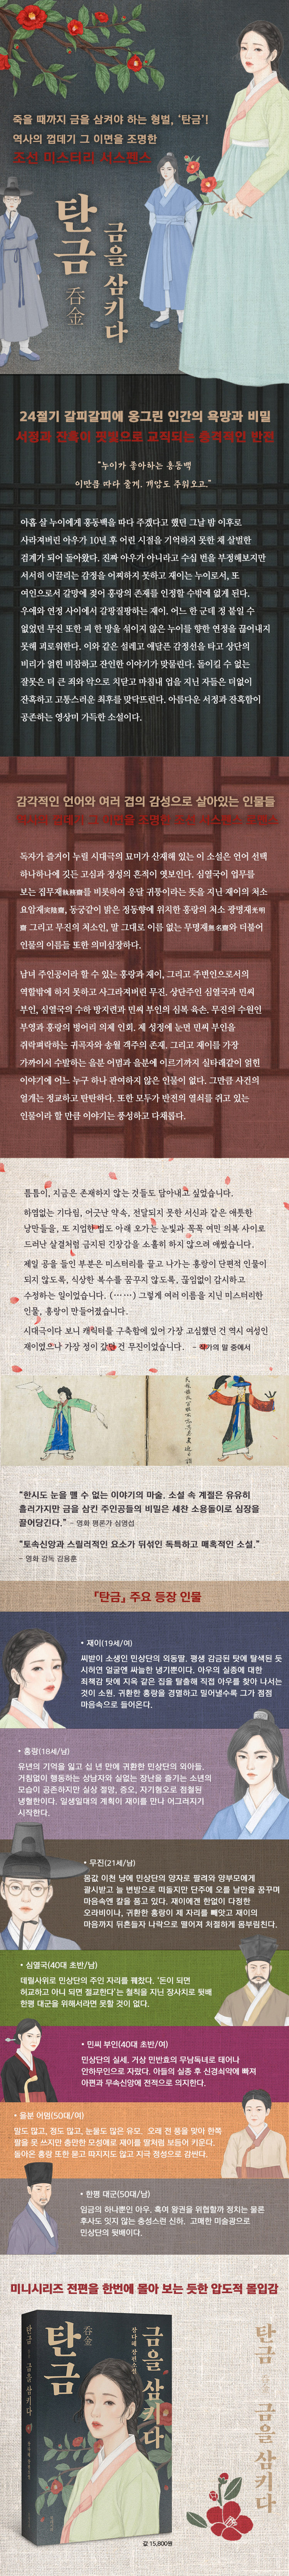 죽을 때까지 금을 삼켜야 하는 형벌, ‘탄금’!
역사의 껍데기 그 이면을 조명한
조선 미스터리 서스펜스
탄금
呑金
금을 삼키다
24절기 갈피갈피에 웅그린 인간의 욕망과 비밀
서정과 잔혹이 핏빛으로 교직되는 충격적인 반전
“누이가 좋아하는 홍동백
이만큼 따다 줄게. 개암도 주워오고.”
아홉 살 누이에게 홍동백을 따다 주겠다고 했던 그날 밤 이후로
사라져버린 아우가 10년 후 어린 시절을 기억하지 못한 채 살벌한
검계가 되어 돌아왔다. 진짜 아우가 아니라고 수십 번을 부정해보지만
서서히 이끌리는 감정을 어찌하지 못하고 재이는 누이로서, 또
여인으로서 갈망에 젖어 홍랑의 존재를 인정할 수밖에 없게 된다.
우애와 연정 사이에서 갈팡질팡하는 재이, 어느 한 군데 정 붙일 수
없었던 무진 또한 피 한 방울 섞이지 않은 누이를 향한 연정을 끊어내지
못해 괴로워한다. 이와 같은 설레고 애달픈 감정선을 타고 상단의
비리가 얽힌 비참하고 잔인한 이야기가 맞물린다. 돌이킬 수 없는
잘못은 더 큰 죄와 악으로 치닫고 마침내 업을 지닌 자들은 더없이
잔혹하고 고통스러운 최후를 맞닥뜨린다. 아름다운 서정과 잔혹함이
공존하는 영상미 가득한 소설이다.
감각적인 언어와 여러 겹의 감성으로 살아있는 인물들
독자가 즐거이 누릴 시대극의 묘미가 산재해 있는 이 소설은 언어 선택
하나하나에 깃든 고심과 정성의 흔적이 엿보인다. 심열국이 업무를
보는 집무재執務齋를 비롯하여 응달 귀퉁이라는 뜻을 지닌 재이의 처소
요암재㝔陰齋, 동궁같이 밝은 정동향에 위치한 홍랑의 처소 광명재光明
齋 그리고 무진의 처소인, 말 그대로 이름 없는 무명재無名齋와 더불어
인물의 이름들 또한 의미심장하다.
남녀 주인공이라 할 수 있는 홍랑과 재이, 그리고 주변인으로서의
역할밖에 하지 못하고 사그라져버린 무진. 상단주인 심열국과 민씨
부인, 심열국의 수하 방지련과 민씨 부인의 심복 육손. 무진의 수원인
부영과 홍랑의 벙어리 의제 인회. 제 성정에 눈먼 민씨 부인을
쥐락펴락하는 귀곡자와 송월 객주의 존재, 그리고 재이를 가장
가까이서 수발하는 을분 어멈과 을분에 이르기까지 실타래같이 얽힌
이야기에 어느 누구 하나 관여하지 않은 인물이 없다. 그만큼 사건의
얼개는 정교하고 탄탄하다. 또한 모두가 반전의 열쇠를 쥐고 있는
인물이라 할 만큼 이야기는 풍성하고 다채롭다.
틈틈이, 지금은 존재하지 않는 것들도 담아내고 싶었습니다.
하염없는 기다림, 어긋난 약속, 전달되지 못한 서신과 같은 애틋한
낭만들을, 또 지엄한 법도 아래 오가는 눈빛과 꼭꼭 여민 의복 사이로
드러난 살결처럼 금지된 긴장감을 소홀히 하지 않으려 애썼습니다.
제일 공을 들인 부분은 미스터리를 끌고 나가는 홍랑이 단편적 인물이
되지 않도록, 식상한 복수를 꿈꾸지 않도록, 끊임없이 감시하고
수정하는 일이었습니다. (……) 그렇게 여러 이름을 지닌 미스터리한
인물, 홍랑이 만들어졌습니다.
시대극이다 보니 캐릭터를 구축함에 있어 가장 고심했던 건 역시 여성인
재이였으나 가장 정이 갔던 건 무진이었습니다. - 작가의 말 중에서
“한시도 눈을 뗄 수 없는 이야기의 마술. 소설 속 계절은 유유히
흘러가지만 금을 삼킨 주인공들의 비밀은 세찬 소용돌이로 심장을
끌어당긴다.” - 영화 평론가 심영섭
“토속신앙과 스릴러적인 요소가 뒤섞인 독특하고 매혹적인 소설.”
- 영화 감독 김용훈
『탄금』 주요 등장 인물
• 재이(19세/여)
씨받이 소생인 민상단의 외동딸. 평생 감금된 탓에 탈색된 듯
시허연 얼굴엔 싸늘한 냉기뿐이다. 아우의 실종에 대한
죄책감 탓에 지옥 같은 집을 탈출해 직접 아우를 찾아 나서는
것이 소원. 귀환한 홍랑을 경멸하고 밀어낼수록 그가 점점
마음속으로 들어온다.
• 홍랑(18세/남)
유년의 기억을 잃고 십 년 만에 귀환한 민상단의 외아들.
거침없이 행동하는 상남자와 실없는 장난을 즐기는 소년의
모습이 공존하지만 실상 절망, 증오, 자기혐오로 점철된
냉혈한이다. 일생일대의 계획이 재이를 만나 어그러지기
시작한다.
• 무진(21세/남)
몸값 이천 냥에 민상단의 양자로 팔려와 양부모에게
괄시받고 늘 변방으로 떠돌지만 단주에 오를 날만을 꿈꾸며
마음속엔 칼을 품고 있다. 재이에겐 한없이 다정한
오라비이나, 귀환한 홍랑이 제 자리를 빼앗고 재이의
마음까지 뒤흔들자 나락으로 떨어져 처절하게 몸부림친다.
• 심열국(40대 초반/남)
데릴사위로 민상단의 주인 자리를 꿰찼다. ‘돈이 되면
허교하고 아니 되면 절교한다’는 철칙을 지닌 장사치로 뒷배
한평 대군을 위해서라면 못할 것이 없다.
• 민씨 부인(40대 초반/여)
민상단의 실세. 거상 민반효의 무남독녀로 태어나
안하무인으로 자랐다. 아들의 실종 후 신경쇠약에 빠져
아편과 무속신앙에 전적으로 의지한다.
• 을분 어멈(50대/여)
말도 많고, 정도 많고, 눈물도 많은 유모. 오래 전 풍을 맞아 한쪽
팔을 못 쓰지만 충만한 모성애로 재이를 딸처럼 보듬어 키운다.
돌아온 홍랑 또한 묻고 따지지도 않고 지극 정성으로 감싼다.
• 한평 대군(50대/남)
임금의 하나뿐인 아우. 혹여 왕권을 위협할까 정치는 물론
후사도 잇지 않는 충성스런 신하. 고매한 미술광으로
민상단의 뒷배이다.
미니시리즈 전편을 한번에 몰아 보는 듯한 압도적 몰입감
탄금
呑金
금을 삼키다
장다혜 장편소설
탄금
금을 삼키다
값 15,800원
탄금
呑金
금을 삼키다